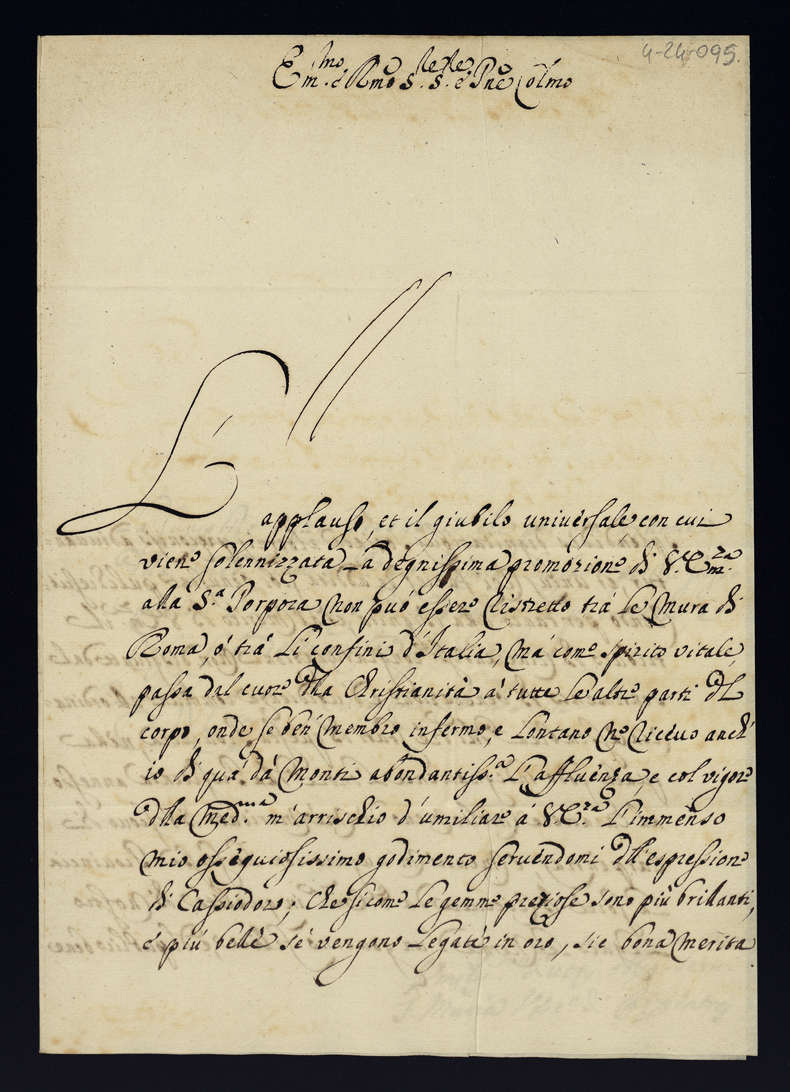 4-24-095.
Em.mo é Rmo S.re S.re é Pne Colmo
L'
applauso, et il giubilo universale, con cui
viene solennizzata La degnissima promozione di V. Em.za
alla S.a Porpora non può essere ristretto trá le mura di
Roma, ó trá Li confini d'Italia, má come spirito vitale,
passa dal cuore dlla Christianità á tutte le altre parti dl
corpo, onde se ben membro infermo, e Lontano ne ricevo anch'
io di quá dá Monti abondantiss.a L'affluenza, e col vigore
dlla Med.ma m'arrischio d'umiliare á V. E.za L'immenso
mio ossequiosissimo godimento servendomi dll'espressione
di Cassiodoro; che sicome Le gemme preziose sono più brillanti,
é più belle sé vengono Legate in oro, sic bona merita